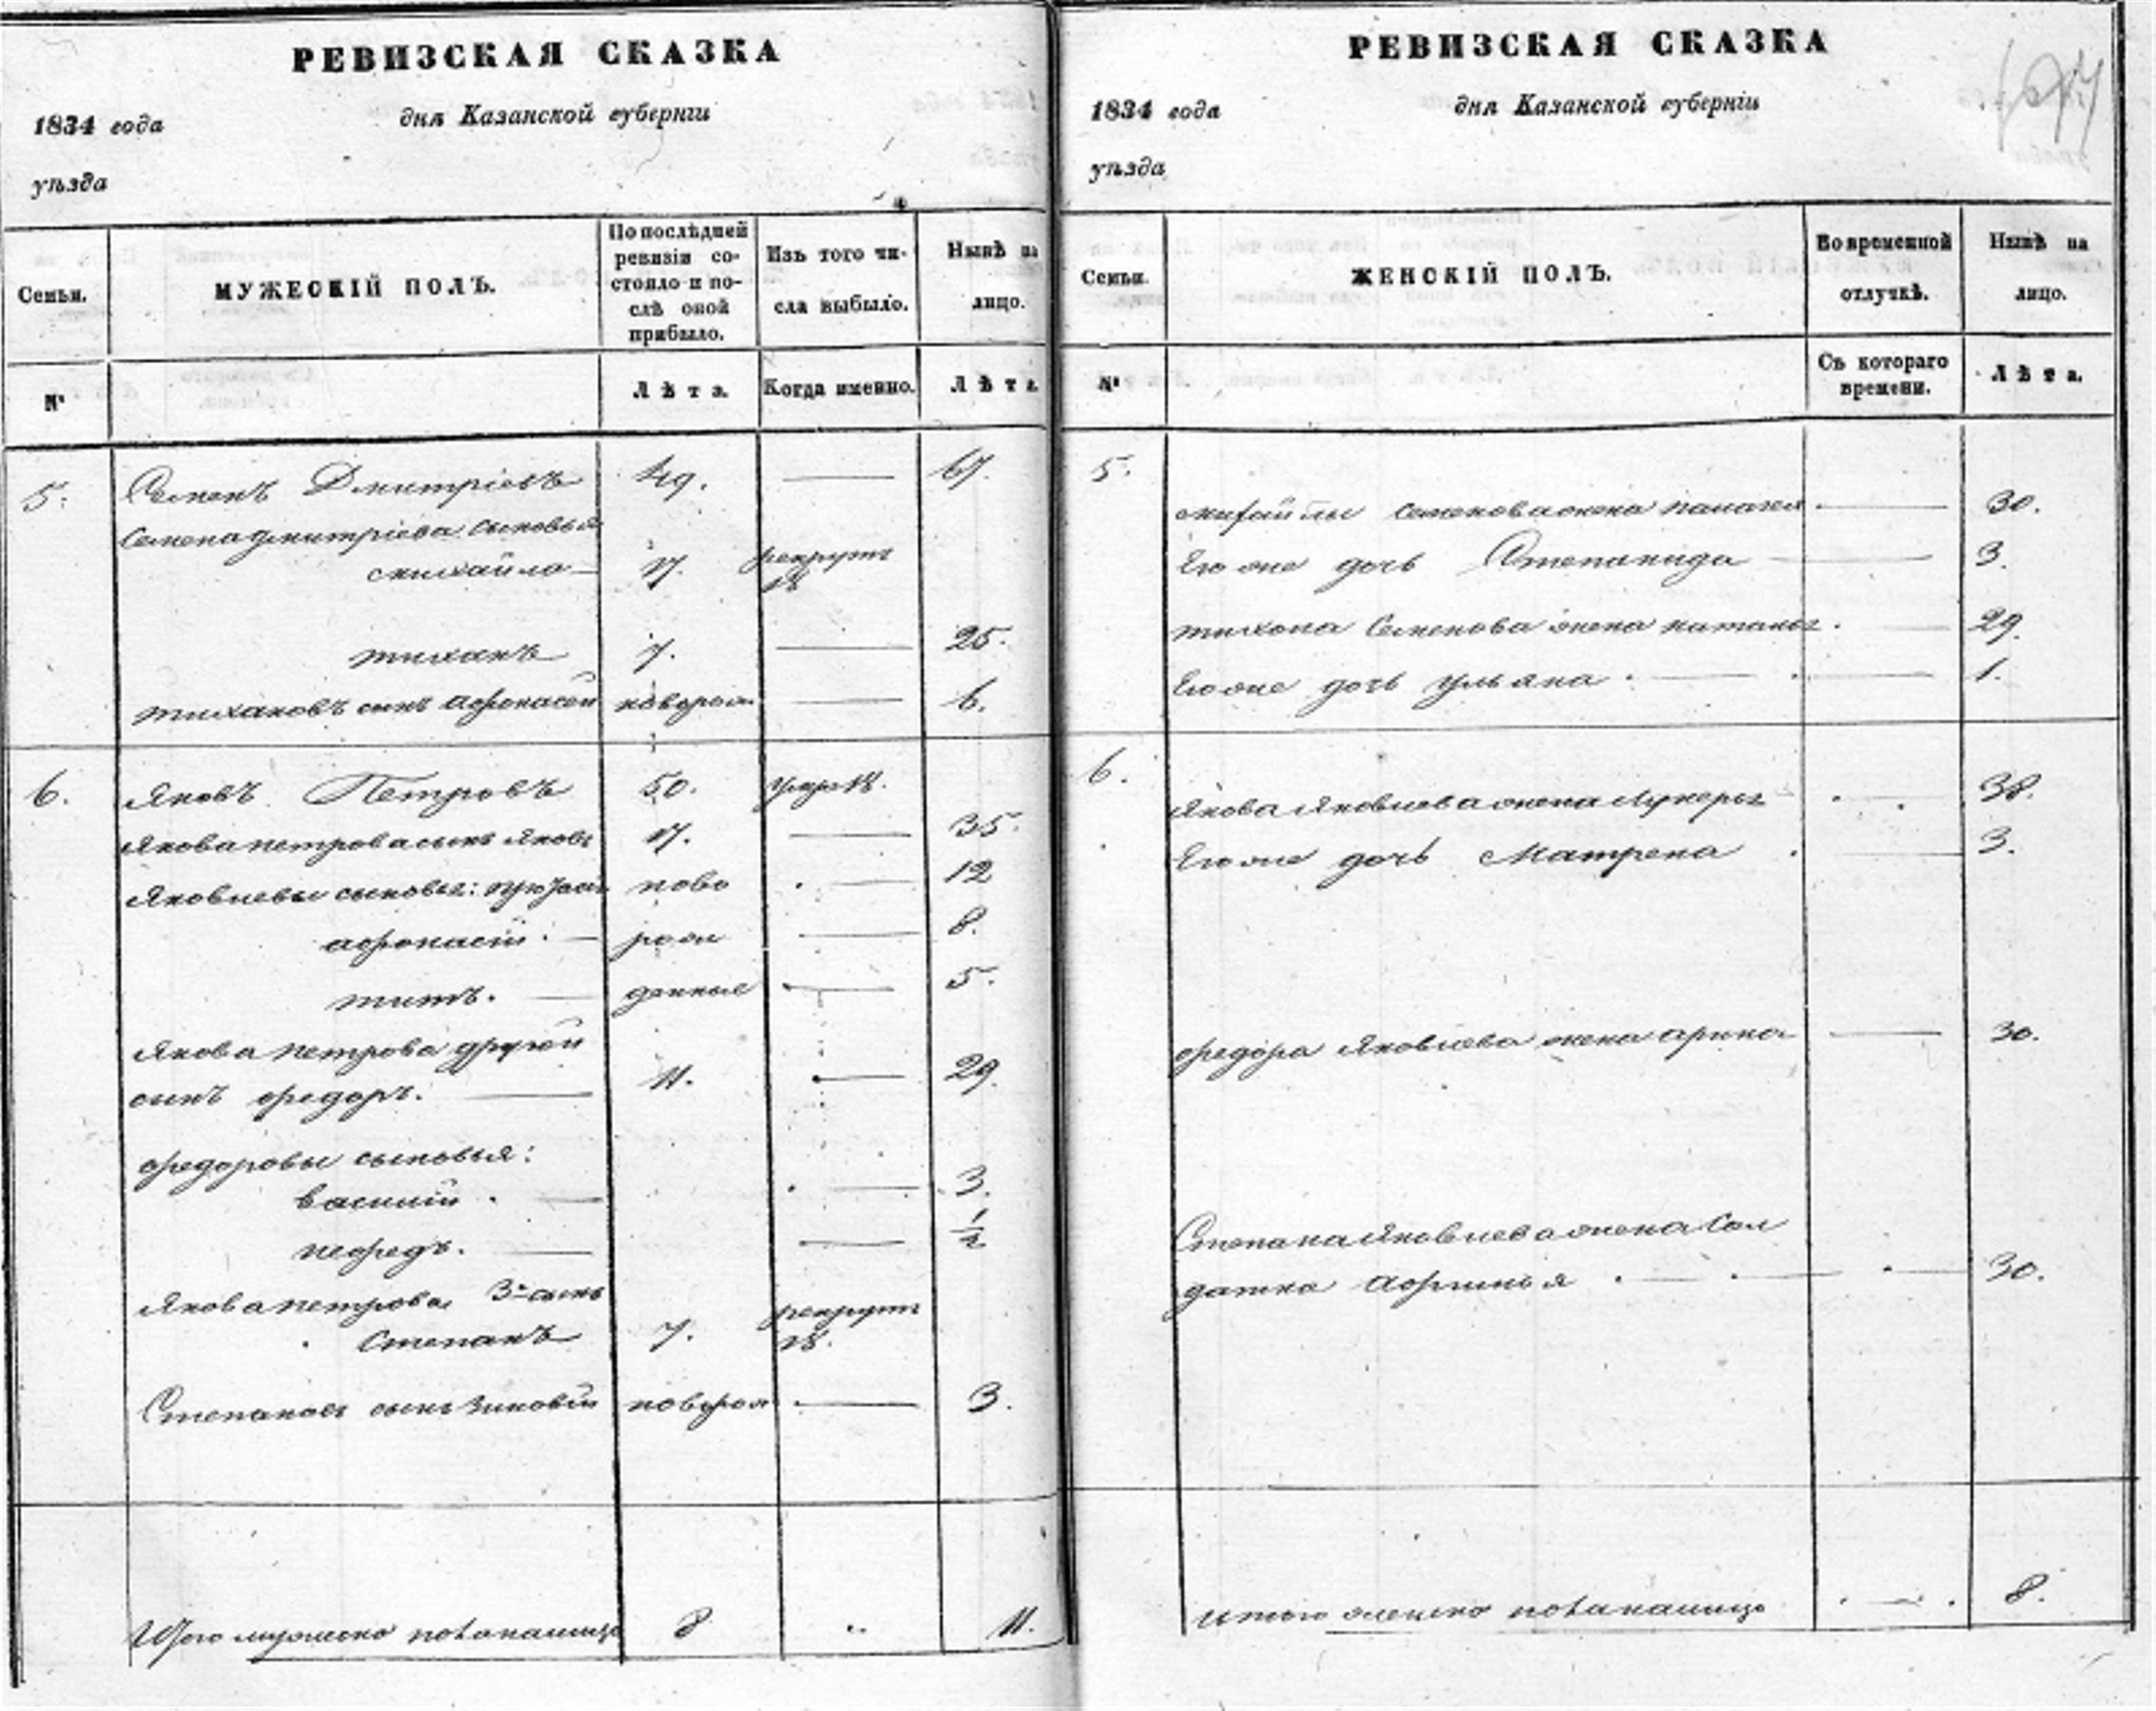 РЕВИЗСКАЯ СКАЗКА
1834 года дня Казанской губерніи
уѣзда
Семьи. МУЖЕСКІЙ ПОЛЪ. По послѣдней ревизіи со- стояло и по- слѣ оной прибыло. Изъ того чи- сла выбыло. Нынѣ на лицо.
№ Лѣта. Когда именно. Лѣта
5. Семенъ Дмитріевъ 49. 67.
Семена Дмитріева сыновья
михайло 17. рекрутъ
тиханъ 7. 25.
тихановъ сынъ афонасей новорож 6.
6. Яковъ Петровъ 50. умр.
Якова петрова сынъ Яковъ 17. 35.
Яковлевы сыновья: ново 12
афонасій. рож 8.
титъ. денные 5.
Якова петрова другой
сынъ федоръ. 11. 29.
федоровы сыновья:
василій. 3.
нефедъ. 1/2
Якова петрова 3й сынъ рекрутъ
Степанъ 7.
Степановъ сынъ Зиновій новорож 3.
Итого мужеска пола на лицо 8 " 11.
РЕВИЗСКАЯ СКАЗКА
1834 года дня Казанской губерніи
уѣзда
Семьи. ЖЕНСКІЙ ПОЛЪ. Во временной отлучкѣ. Нынѣ на лицо.
№ Съ котораго времени. Лѣта.
5. михайлы семенова жена палагея 30.
Его же дочь Степанида 3.
тихона Семенова жена наталья 29.
Его же дочь ульяна 1.
6. Якова Яковлева жена Лукерья 38.
Его же дочь Матрена 3.
федора Яковлева жена арина 30.
Степана Яковлева жена Сол
датка афимья 30.
итого женска пола на лицо 8.